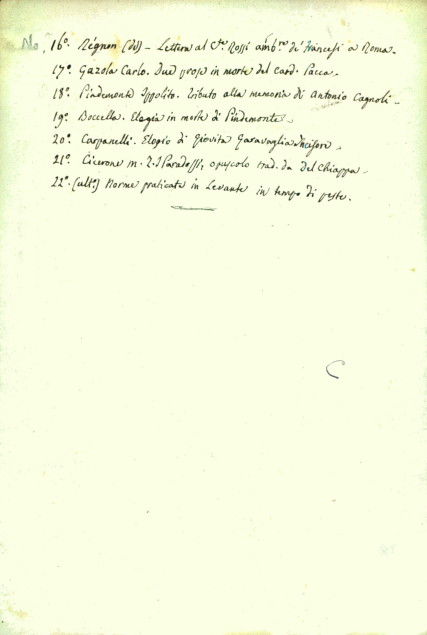 No 16º. Régnon (de) - Lettera al Cte Rossi ambre de' Francesi a Roma.
17º. Gazola Carlo. Due prose in morte del Card. Pacca.
18º. Pindemonte Ippolito. Tributo alla memoria di Antonio Cagnoli -
19º. Boccella. Elegia in morte di Pindemonte.
20º. Carpanelli. Elogio di Giovita Garavaglia Incisore.
21º. Cicerone M. T. I Paradossi, opuscolo trad. da Del Chiappa.
22º. (ulto) Norme praticate in Levante in tempo di peste.